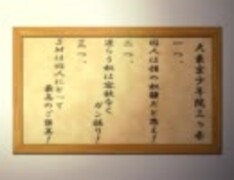 大東京少年院三ヶ条
一つ、
囚人は俺の奴隷だと思え！
二つ、
逆らう奴は容赦なく
ガン掘り！
三つ、
SMは囚人にとって
最高のご褒美！